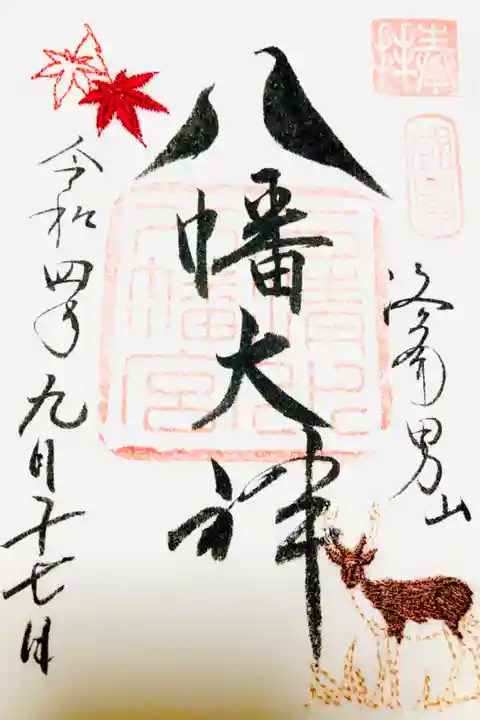 奉拝
洛南男山
八幡大神
石清水
八幡宮
令和四年九月十七日